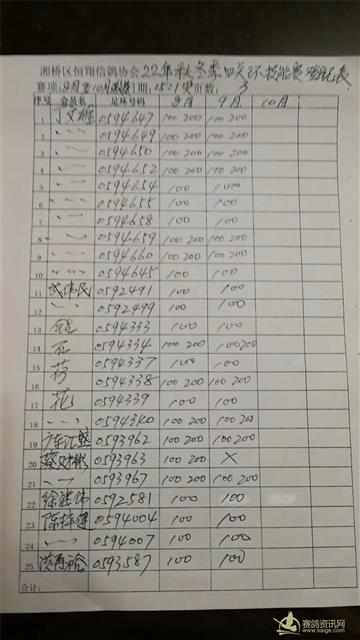 湘桥区恒翔信鸽协会22年秋冬季四关环技能赛登记表
序号 会员名 足环号码 8月 9月 10月
1 0594647 100 200 100 200
2 〃 0594649 100 200 100 200
3 〃 0594650 100 200 100 200
4 〃 0594652 100 200 100 200
5 〃 0594654 100 100
6 〃 0594655 100 100
7 〃 0594658 100 100
8 〃 0594659 100 200 100 200
9 〃 0594660 100 200 100 200
10 〃 0594645 100 100
11 0592491 100 100
12 〃 0592499 100 100
13 0594333 100 100
14 0594334 100 200 100 200
15 荷 0594337 100 100
16 0594338 100 200 100 200
17 花 0594339 100 100
18 〃 0594340 100 200 100 200
19 0593962 100 200 100 200
20 蔡财彬 0593963 100 200 ×
21 〃 0593967 100 200 100 200
22 0592581 100 100
23 0594004 100 100
24 〃 0594007 100 100
25 0593587 100 100
合计:
赛鸽资讯网
www.saige.com